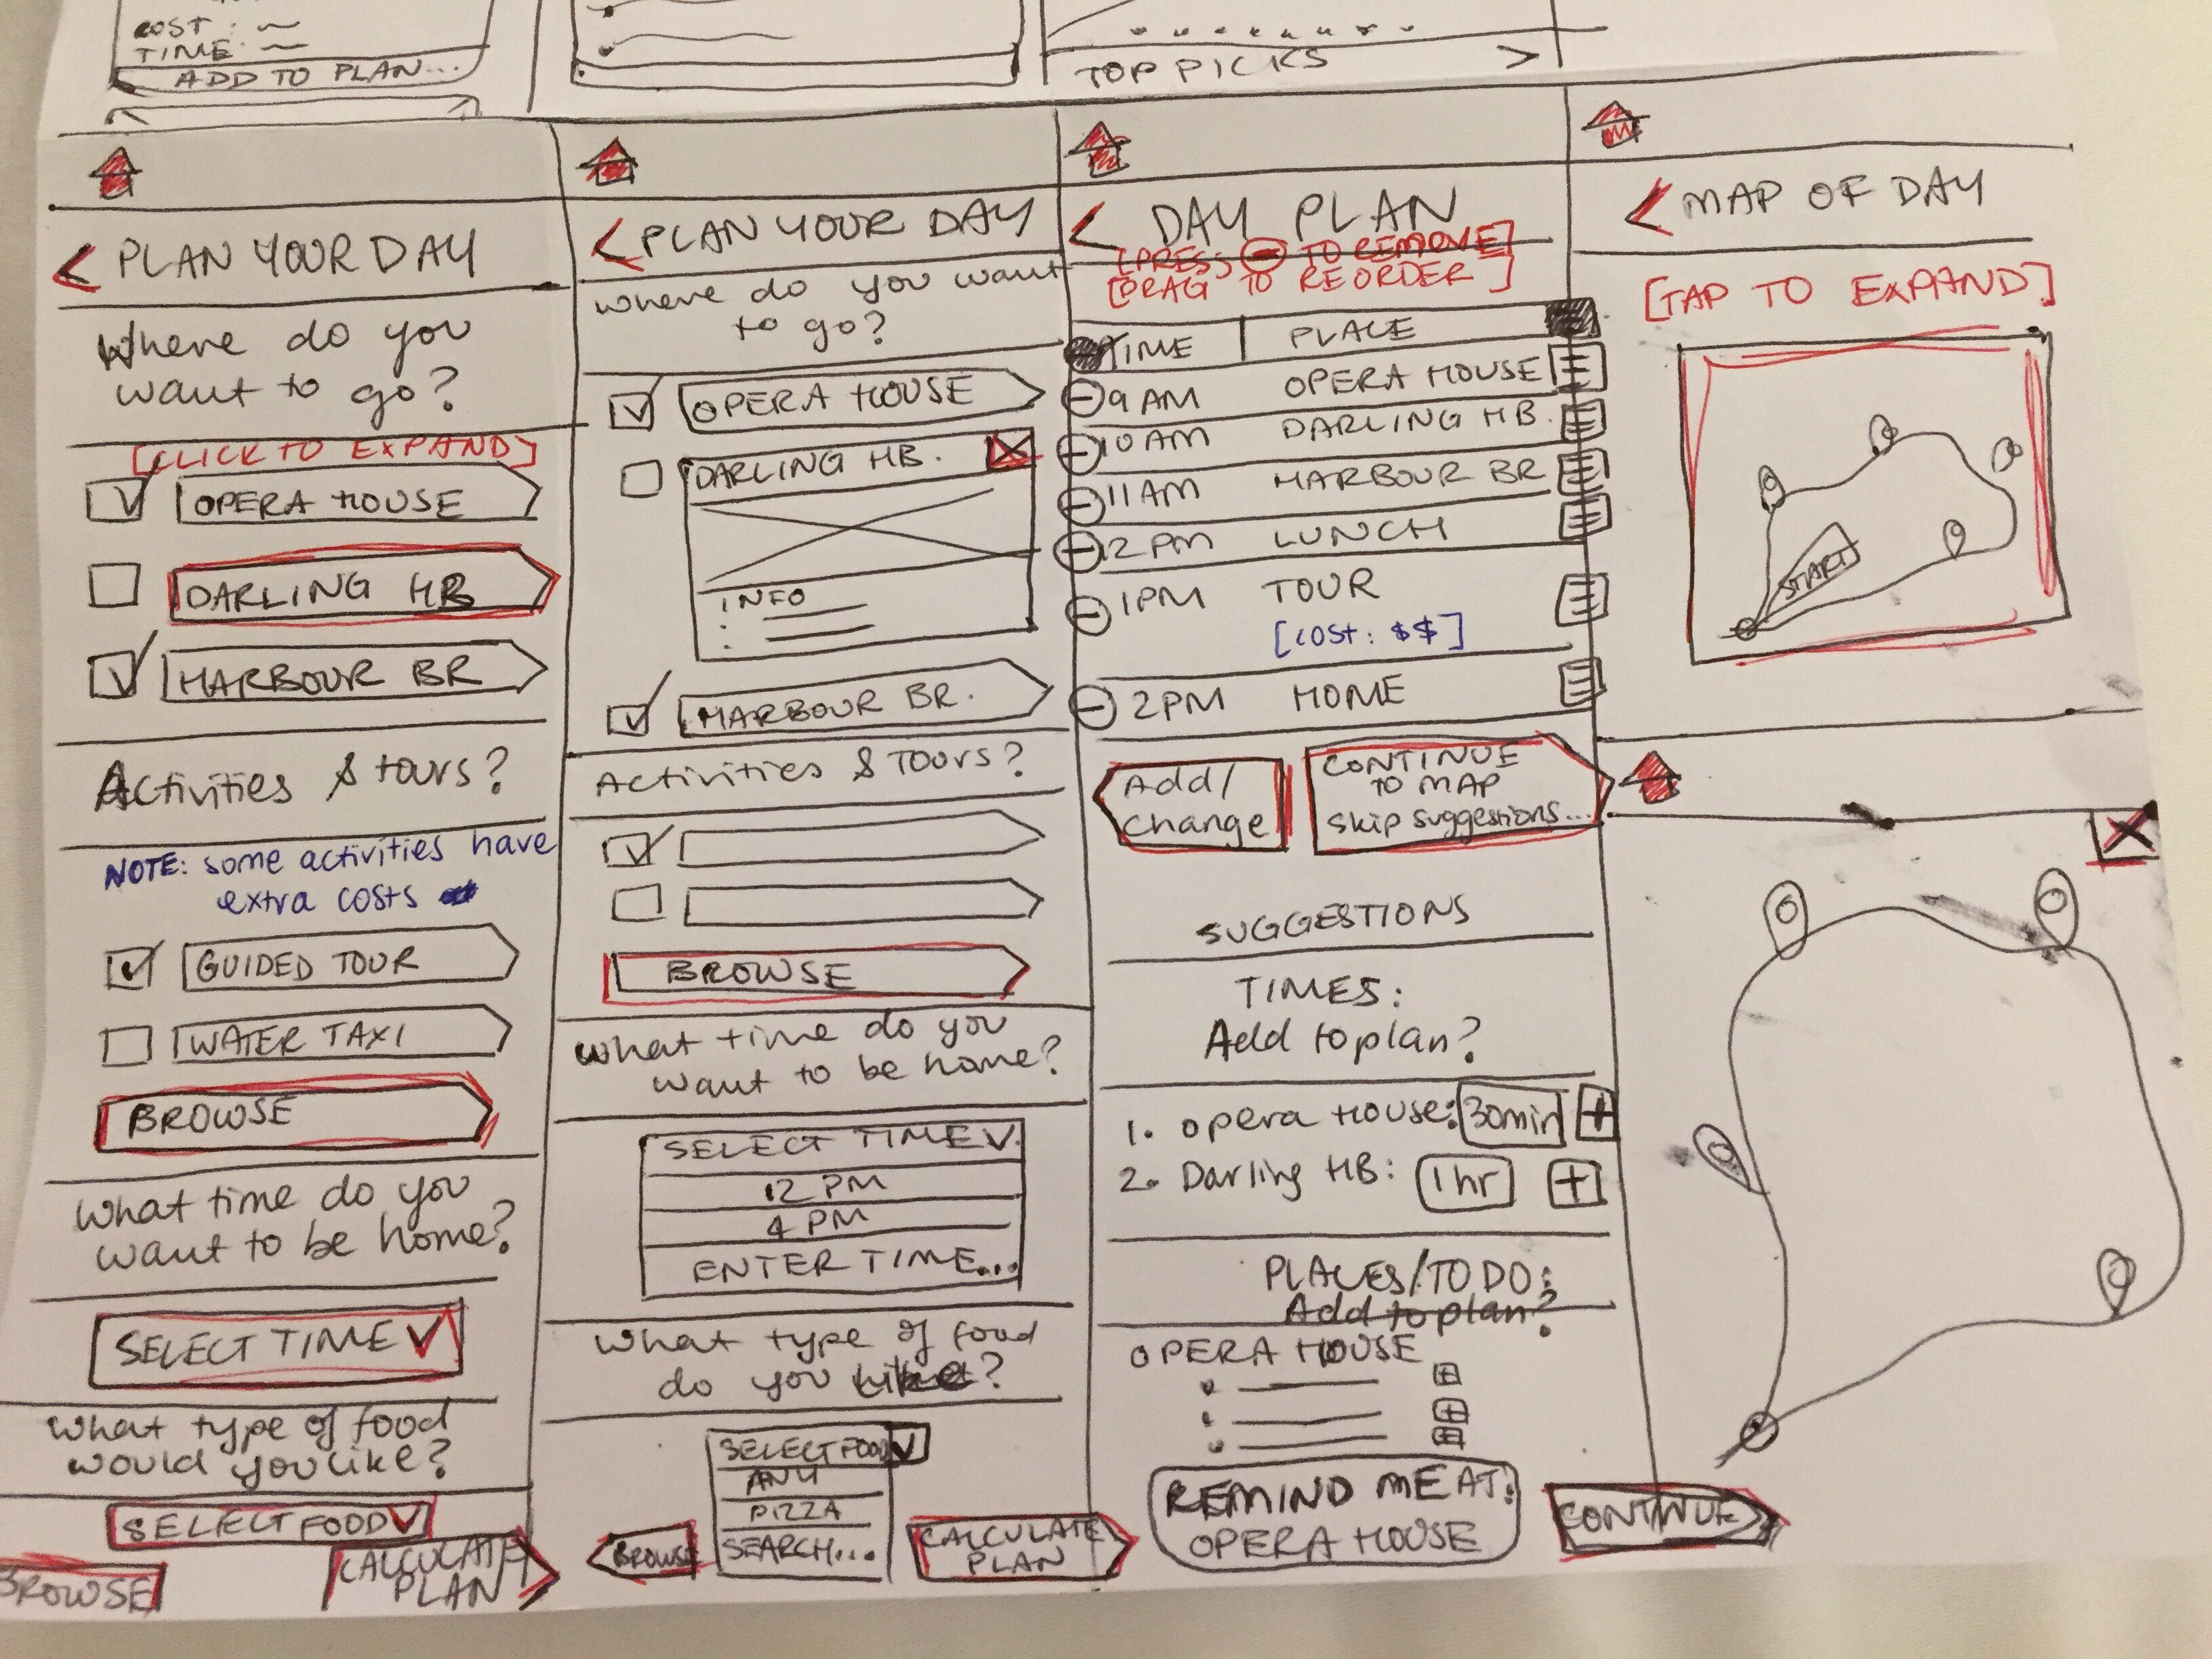 COST :~
TIME :~
ADD TO PLAN...
TOP PICKS
< PLAN YOUR DAY
Where do you
want to go?
[CLICK TO EXPAND]
OPERA HOUSE
DARLING HB
HARBOUR BR
Activities & tours?
NOTE: some activities have
extra costs
GUIDED TOUR
WATER TAXI
BROWSE
What time do you
want to be home?
SELECT TIME V
What type of food
would you like?
SELECT FOOD V
BROWSE
CALCULATE
PLAN
< PLAN YOUR DAY
where do you want
to go?
OPERA HOUSE
DARLING HB.
X
: INFO
HARBOUR BR.
Activities & Tours?
BROWSE
What time do you
want to be home?
SELECT TIME V
12 PM
4 PM
ENTER TIME...
What type of food
do you like?
SELECT FOOD V
ANY
PIZZA
SEARCH...
BROWSE
CALCULATE
PLAN
< DAY PLAN
[PRESS - TO REMOVE]
[DRAG TO REORDER]
TIME | PLACE
9AM OPERA HOUSE
10AM DARLING HB.
11AM HARBOUR BR
12PM LUNCH
1PM TOUR
[COST: $$]
2PM HOME
Add/
Change
CONTINUE
TO MAP
skip suggestions...
SUGGESTIONS
TIMES:
Add to plan?
1. opera House: 30min +
2. Darling HB: 1hr +
PLACES/TO DO:
Add to plan?
OPERA HOUSE
REMIND ME AT:
OPERA HOUSE
CONTINUE
< MAP OF DAY
[TAP TO EXPAND]
START
X